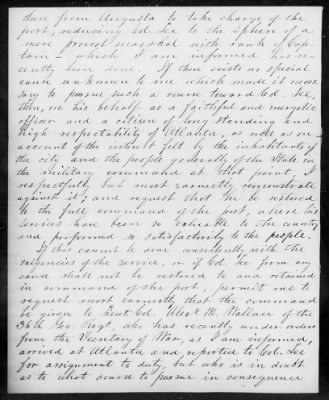 them from Augusta to take charge of the
post, reducing Col. Lee to the sphere of a
mere provost marshal with rank of Cap-
tain - which I am informed has re-
cently been done. If there exists no special
cause unknown to me which made it neces
sary to pursue such a course toward Col. Lee,
then, on his behalf as a faithful and energetic
officer and a citizen of long standing and
high respectability of Atlanta, as well as on
account of the interest felt by the inhabitants of
the city and the people generally of the State in
the military command at that point, I
respectfully but most earnestly remonstrate
against it; and request that he be restored
to the full command of the post, where his
services have been so valuable to the country
and performed so satisfactorily to the people.
If this cannot be done, consistently with the
exigencies of the service, or if Col. Lee from any
cause shall not be restored to and retained
in command of the post, permit me to
request most earnestly that the command
be given to Lieut. Col. Alex. M. Wallace of the
36th Geo. Regt. who has recently under orders
from the Secretary of War, as I am informed,
arrived at Atlanta and reported to Col. Lee
for assignment to duty, but who is in doubt
as to what course to pursue in consequence